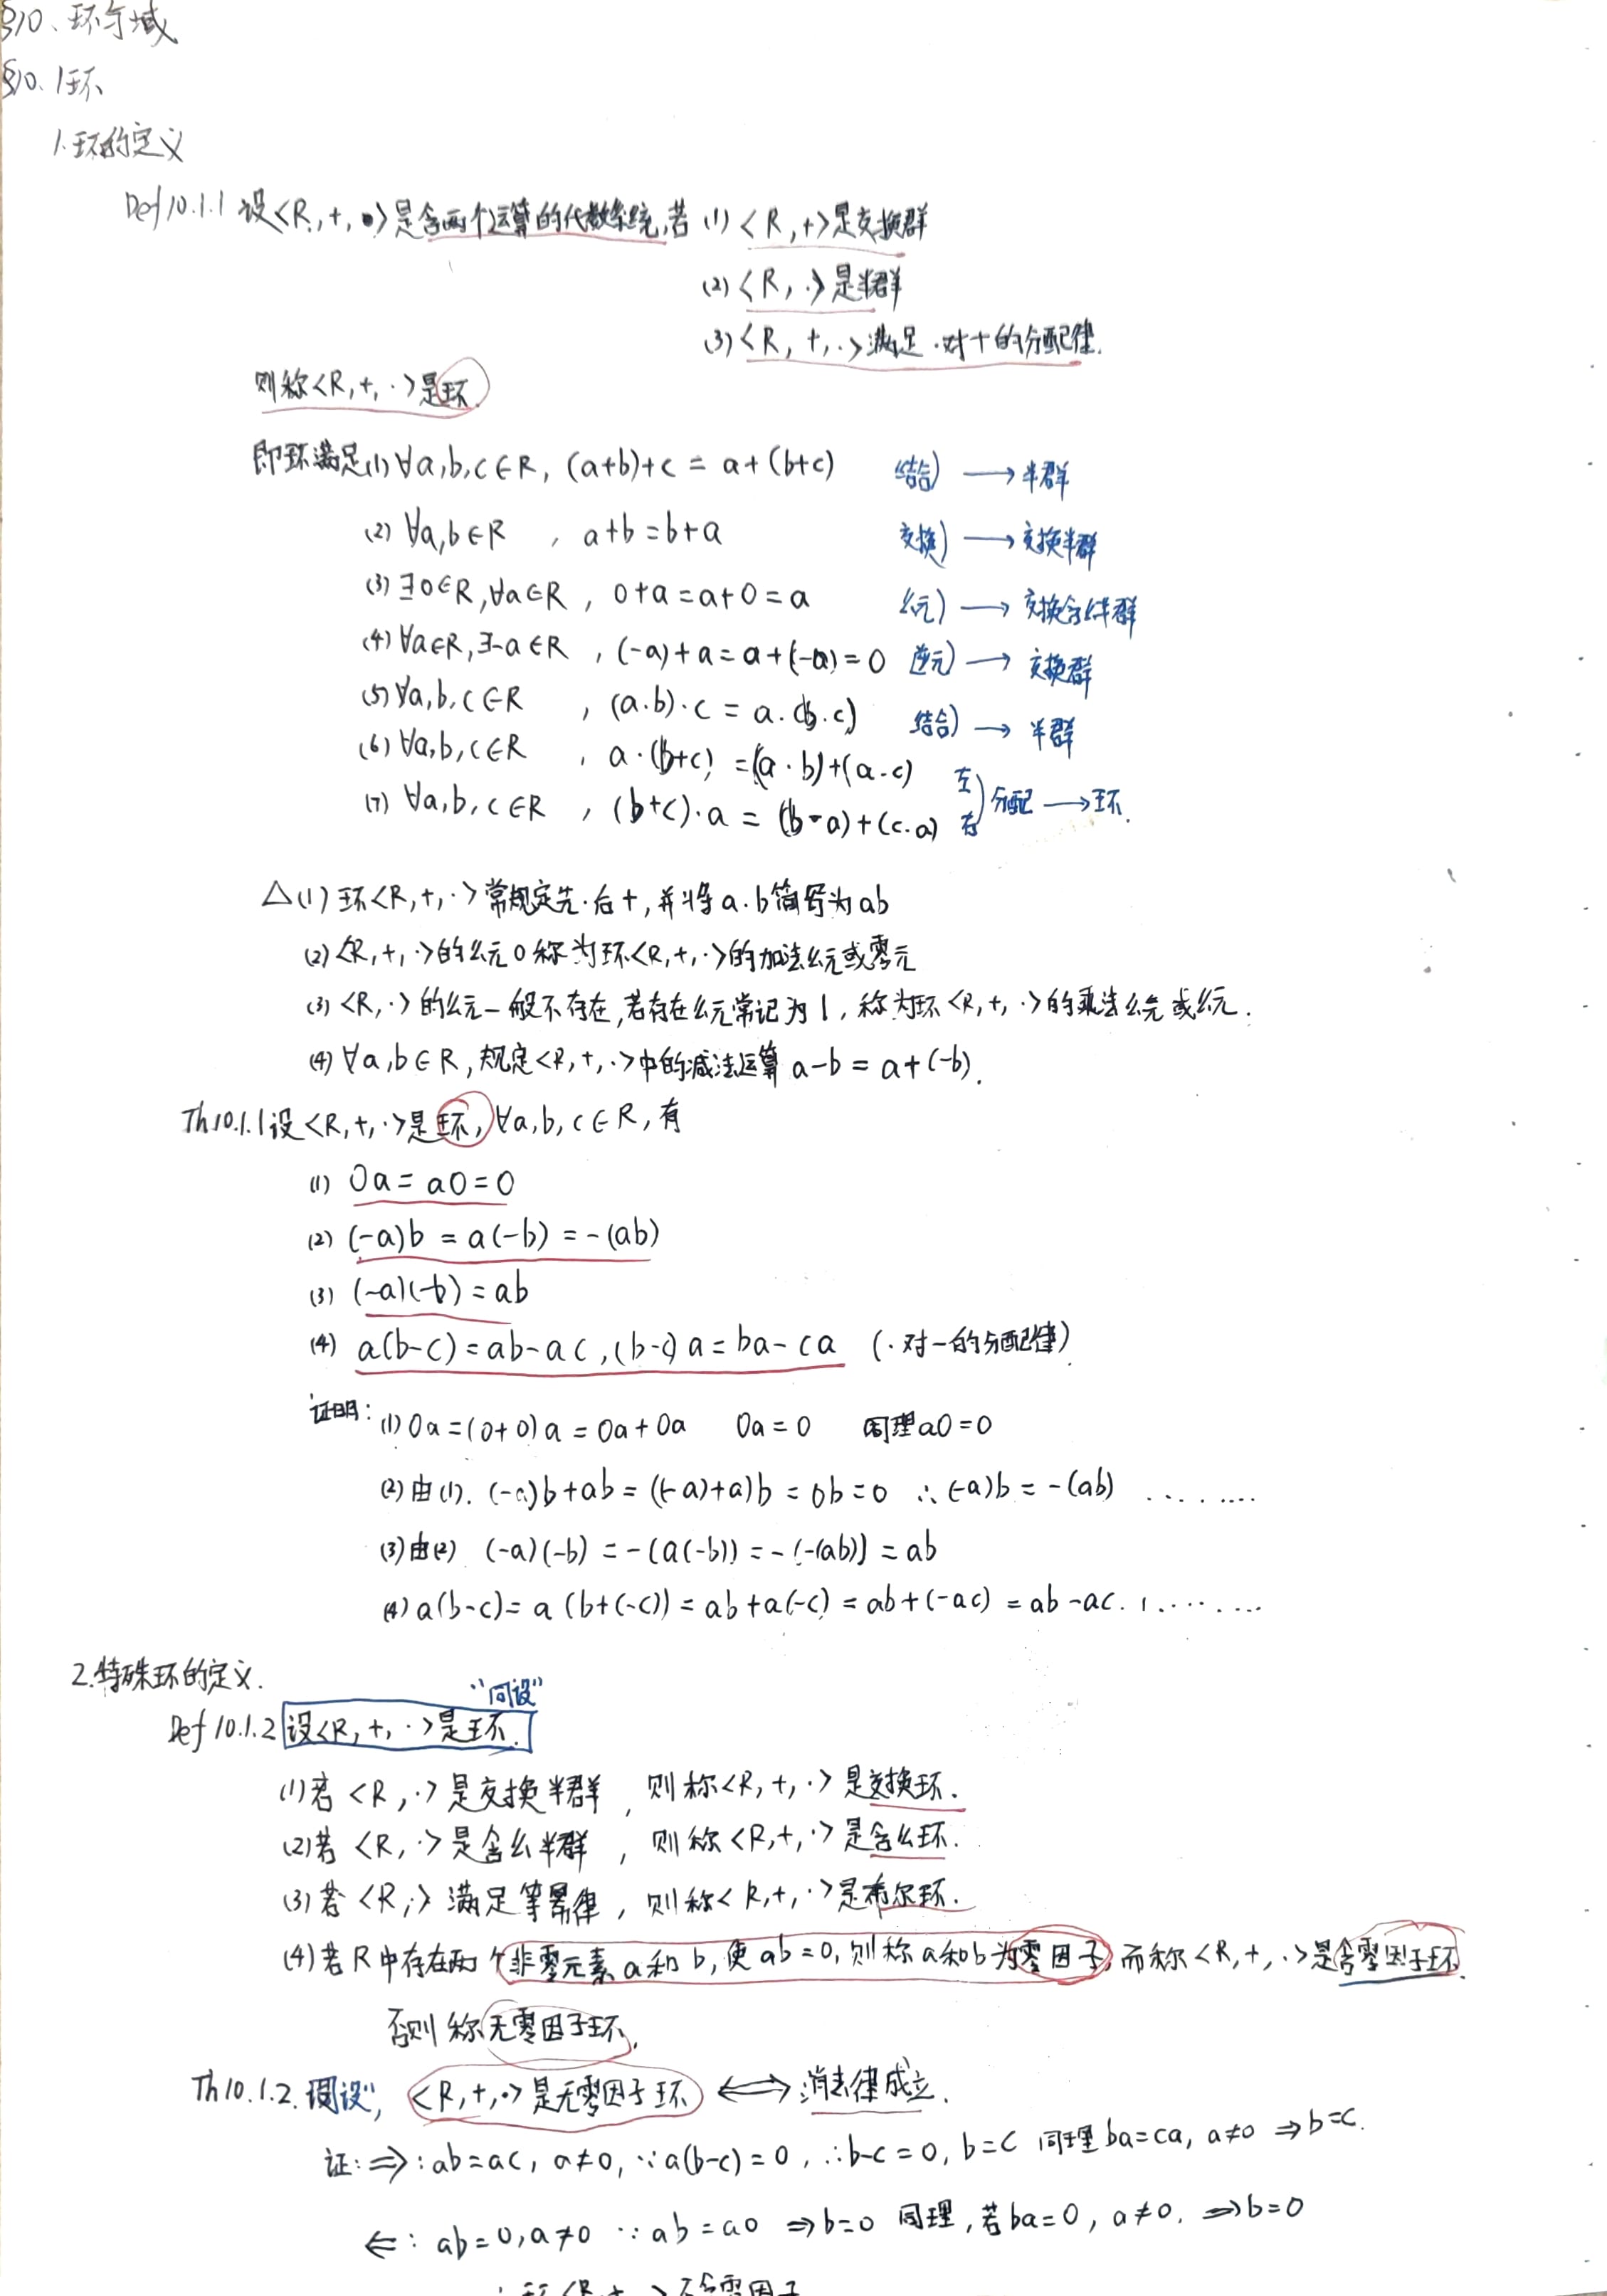 §10、环与域
§10.1环
1.环的定义
Def10.1.1 设<R,+,·>是含两个运算的代数系统,若 (1) <R,+>是交换群
(2) <R,·>是半群
(3) <R,+,·>满足·对+的分配律.
则称<R,+,·>是环.
即环满足(1)∀a,b,c∈R, (a+b)+c = a+(b+c) 结合) → 半群
(2) ∀a,b∈R , a+b=b+a 交换) → 交换半群
(3) ∃0∈R,∀a∈R , 0+a=a+0=a 幺元) → 交换含幺半群
(4) ∀a∈R,∃-a∈R , (-a)+a=a+(-a)=0 逆元) → 交换群
(5) ∀a,b,c∈R , (a·b)·c = a·(b·c) 结合) → 半群
(6) ∀a,b,c∈R , a·(b+c) =(a·b)+(a·c) 左
(7) ∀a,b,c∈R , (b+c)·a = (b·a)+(c·a) 右 )分配 → 环.
△(1) 环<R,+,·>常规定先·后+,并将a·b简写为ab
(2) <R,+,·>的幺元0称为环<R,+,·>的加法幺元或零元
(3) <R,·>的幺元一般不存在,若存在幺元常记为1, 称为环<R,+,·>的乘法幺元或幺元.
(4) ∀a,b∈R,规定<R,+,·>中的减法运算 a-b = a+(-b).
Th10.1.1设<R,+,·>是环,∀a,b,c∈R,有
(1) 0a = a0=0
(2) (-a)b = a(-b) = -(ab)
(3) (-a)(-b) = ab
(4) a(b-c)=ab-ac,(b-c)a=ba-ca (·对-的分配律)
证明: (1) 0a=(0+0)a=0a+0a 0a=0 同理a0=0
(2)由(1). (-a)b+ab=((-a)+a)b=0b=0 ∴(-a)b=-(ab) ........
(3)由(2) (-a)(-b) = -(a(-b)) = -(-(ab)) = ab
(4) a(b-c)= a(b+(-c)) = ab+a(-c) = ab+(-ac) = ab-ac. ........
2.特殊环的定义.
"同设"
Def 10.1.2 设<R,+,·>是环.
(1)若<R,·>是交换半群, 则称<R,+,·>是交换环.
(2)若<R,·>是含幺半群, 则称<R,+,·>是含幺环.
(3)若<R,·>满足等幂律, 则称<R,+,·>是布尔环.
(4)若R中存在两个非零元素a和b,使ab=0,则称a和b为零因子,而称<R,+,·>是含零因子环.
否则称无零因子环.
Th10.1.2."同设", <R,+,·>是无零因子环 ⟺ 消去律成立.
证:⇒:ab=ac, a≠0,∵a(b-c)=0, ∴b-c=0, b=c 同理ba=ca, a≠0 ⇒b=c.
⇐: ab=0,a≠0 ∵ab=a0 ⇒b=0 同理,若ba=0, a≠0. ⇒b=0